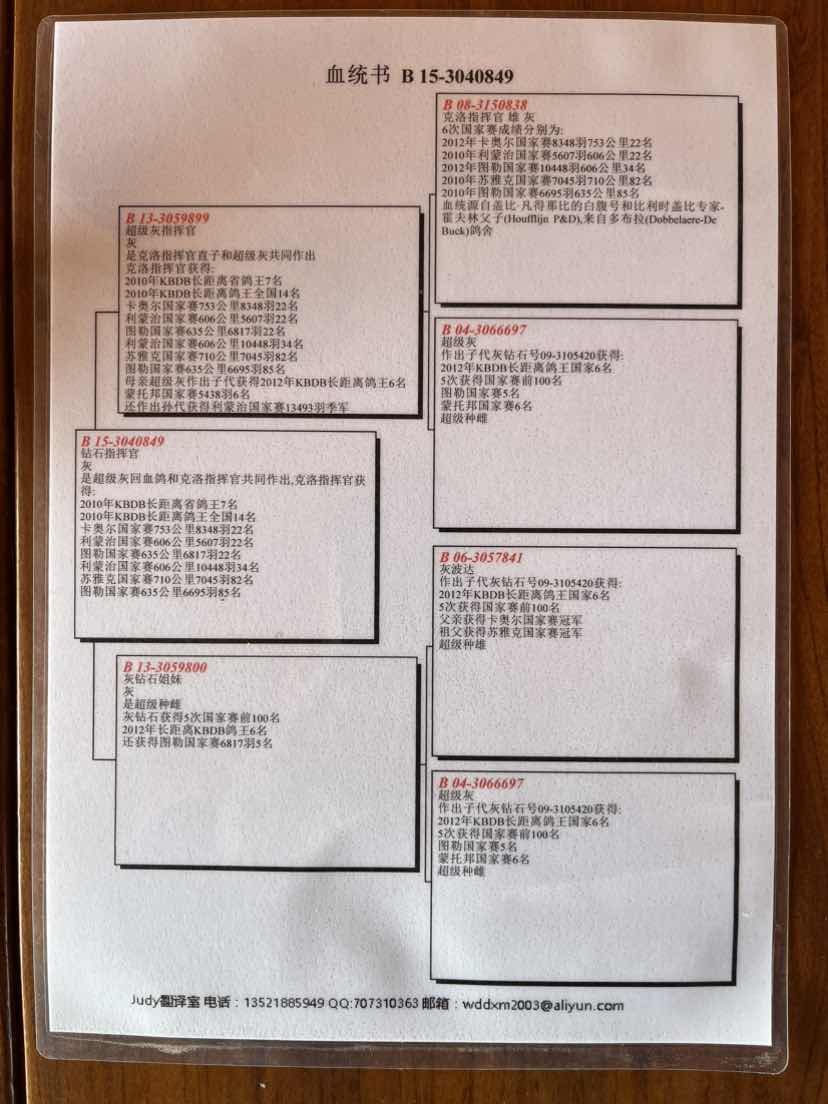 血统书 B 15-3040849
B 08-3150838
克洛指挥官 雄 灰
6次国家赛成绩分别为:
2012年卡奥尔国家赛8348羽753公里22名
2010年利蒙治国家赛5607羽606公里22名
2012年图勒国家赛10448羽606公里34名
2010年苏雅克国家赛7045羽710公里82名
2010年图勒国家赛6695羽635公里85名
血统源自盖比·凡得那比的白腹号和比利时盖比专家-
霍夫林父子(Houfflijn P&D),来自多布拉(Dobbelaere-De
Buck)鸽舍
B 13-3059899
超级灰指挥官
灰
是克洛指挥官直子和超级灰共同作出
克洛指挥官获得:
2010年KBDB长距离省鸽王7名
2010年KBDB长距离鸽王全国14名
卡奥尔国家赛753公里8348羽22名
利蒙治国家赛606公里5607羽22名
图勒国家赛635公里6817羽22名
利蒙治国家赛606公里10448羽34名
苏雅克国家赛710公里7045羽82名
图勒国家赛635公里6695羽85名
母亲超级灰作出子代获得2012年KBDB长距离鸽王6名
蒙托邦国家赛5438羽6名
还作出孙代获得利蒙治国家赛13493羽季军
B 04-3066697
超级灰
作出子代灰钻石号09-3105420获得:
2012年KBDB长距离鸽王国家6名
5次获得国家赛前100名
图勒国家赛5名
蒙托邦国家赛6名
超级种雌
B 15-3040849
钻石指挥官
灰
是超级灰回血鸽和克洛指挥官共同作出,克洛指挥官获
得:
2010年KBDB长距离省鸽王7名
2010年KBDB长距离鸽王全国14名
卡奥尔国家赛753公里8348羽22名
利蒙治国家赛606公里5607羽22名
图勒国家赛635公里6817羽22名
利蒙治国家赛606公里10448羽34名
苏雅克国家赛710公里7045羽82名
图勒国家赛635公里6695羽85名
B 06-3057841
灰波达
作出子代灰钻石号09-3105420获得:
2012年KBDB长距离鸽王国家6名
5次获得国家赛前100名
父亲获得卡奥尔国家赛冠军
祖父获得苏雅克国家赛冠军
超级种雄
B 13-3059800
灰钻石姐妹
灰
是超级种雌
灰钻石获得5次国家赛前100名
2012年长距离KBDB鸽王6名
还获得图勒国家赛6817羽5名
B 04-3066697
超级灰
作出子代灰钻石号09-3105420获得:
2012年KBDB长距离鸽王国家6名
5次获得国家赛前100名
图勒国家赛5名
蒙托邦国家赛6名
超级种雌
Judy翻译室 电话：13521885949 QQ:707310363 邮箱：wddxm2003@aliyun.com